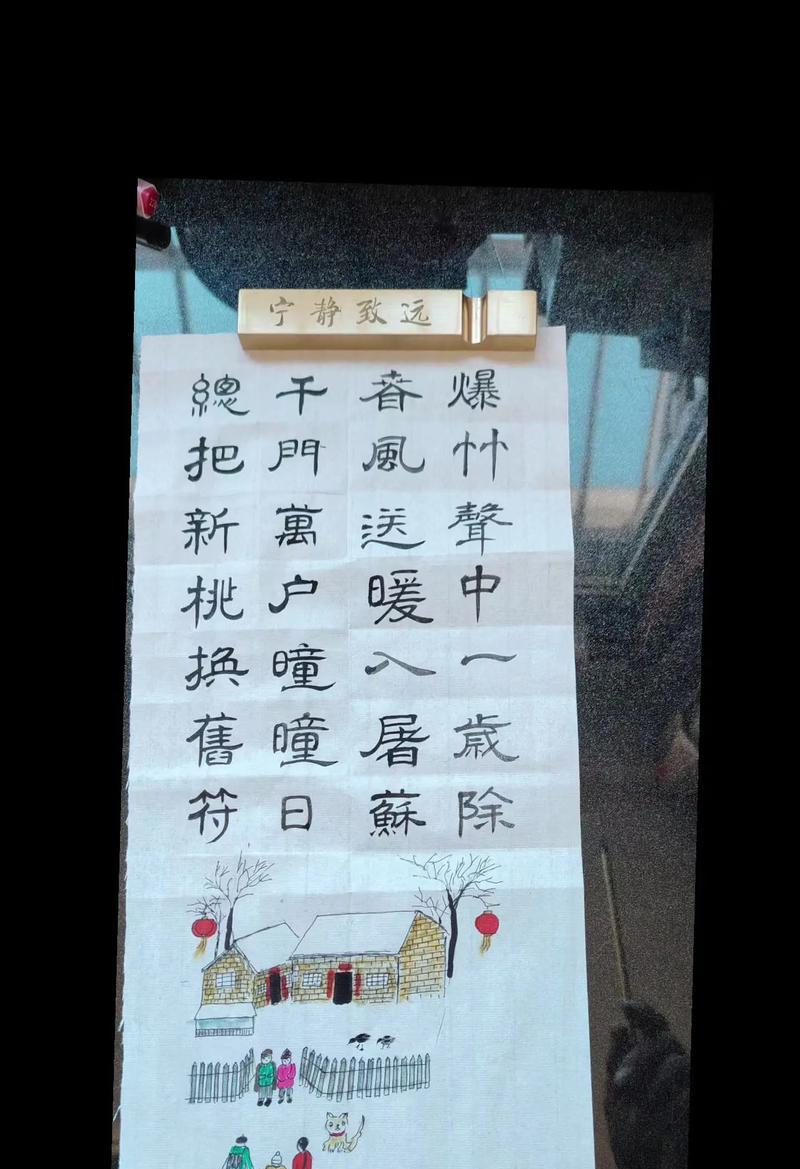 宁静致远
爆竹聲中一歲除
春風送暖入屠蘇
千門萬户曈曈日
總把新桃换舊符